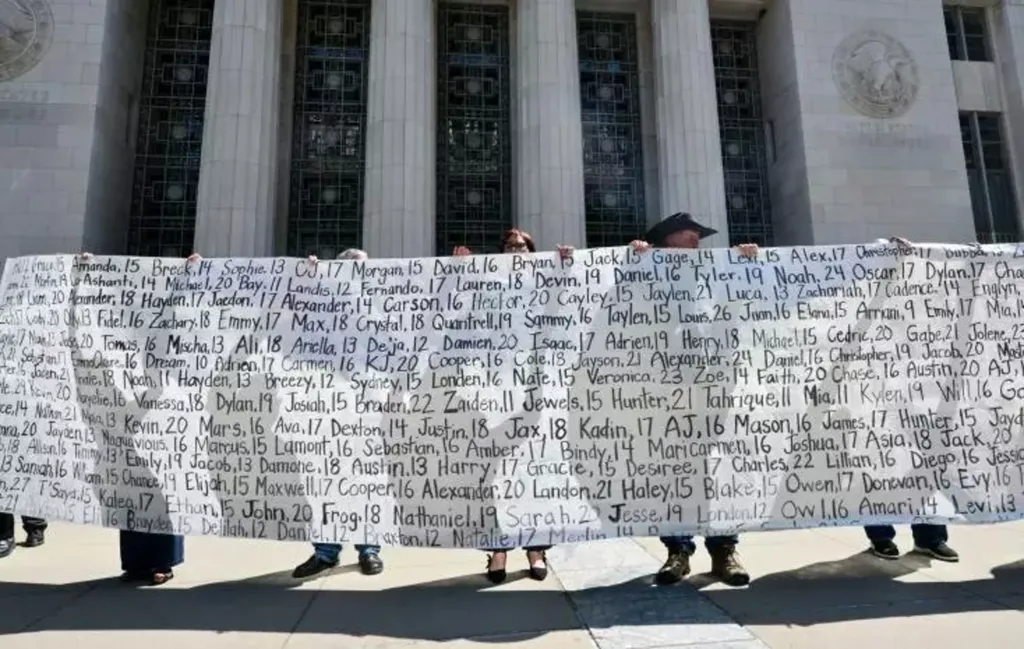 Amanda, 15 Breck, 14 Sophie, 13 CJ, 17 Morgan, 15 David, 16 Bryan, 15 Jack, 15 Gage, 14 Lexi, 15 Alex, 17 Christopher, 17
Ashanti, 14 Michael, 20 Bay, 11 Landis, 12 Fernando, 17 Lauren, 18 Devin, 19 Daniel, 16 Tyler, 19 Noah, 24 Oscar, 17 Dylan, 17
Liam, 20 Alexander, 18 Hayden, 17 Jaedon, 17 Alexander, 14 Carson, 16 Hector, 20 Cayley, 15 Jaylen, 21 Luca, 13 Zachariah, 17 Cadence, 14 Emilyn,
Cody, 20 Fidel, 16 Zachary, 18 Emmy, 17 Max, 18 Crystal, 18 Quantrell, 19 Sammy, 16 Taylen, 15 Louis, 26 Juan, 16 Elana, 15 Arriani, 9 Emily, 17 Mia,
Tomas, 16 Mischa, 13 Ali, 18 Ariella, 13 De'ja, 12 Damien, 20 Isaac, 17 Adrien, 19 Henry, 18 Michael, 15 Cedric, 20 Gabe, 21 Jolene, 23
EmmaClaire, 16 Dream, 10 Adrien, 17 Carmen, 16 KJ, 20 Cooper, 16 Cole, 18 Jayson, 21 Alexander, 24 Daniel, 16 Christopher, 19 Jacob, 20
Noah, 11 Hayden, 13 Breezy, 12 Sydney, 15 Londen, 16 Nate, 15 Veronica, 23 Zoe, 14 Faith, 20 Chase, 16 Austin, 20 AJ,
16 Vanessa, 18 Dylan, 19 Josiah, 15 Braden, 22 Zaiden, 11 Jewels, 15 Hunter, 21 Tahrique, 11 Mia, 11 Kylen, 19 Will, 16
Nathan, 21 13 Kevin, 20 Mars, 16 Ava, 17 Dexton, 14 Justin, 18 Jax, 18 Kadin, 17 AJ, 16 Mason, 16 James, 17 Hunter, 15
Jayden, 13 Naquavious, 16 Marcus, 15 Lamont, 16 Sebastian, 16 Amber, 17 Bindy, 14 Maricarmen, 16 Joshua, 17 Asia, 18 Jack, 20
Allison, 16 Timmy, 13 Emily, 19 Jacob, 13 Damone, 18 Austin, 13 Harry, 17 Gracie, 15 Desiree, 17 Charles, 22 Lillian, 16 Diego, 16
Saniah, 16 15 Chance, 19 Elijah, 15 Maxwell, 17 Cooper, 16 Alexander, 20 Landon, 21 Haley, 15 Blake, 15 Owen, 17 Donevan, 16 Evy, 16
T'Saya, 15 Kalea, 17 Ethan, 15 John, 20 Frog, 18 Nathaniel, 19 Sarah, 21 Jesse, 19 London, 12 Owl, 16 Amari, 14 Levi, 13
Eli, 16 Brayden, 15 Delilah, 12 Daniel, 12 Braxton, 12 Natalie, 17 Merlin, 14